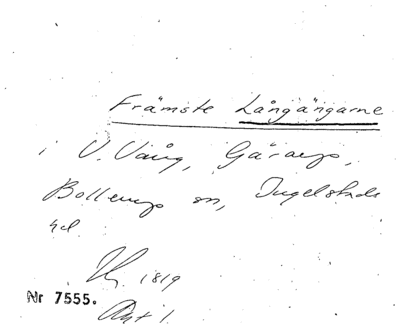 Främste Långängarne
i V. Vång, Gärarps,
Bollerups sn, Ingelstads
hd
1819
Nr 7555.
Akt 1.